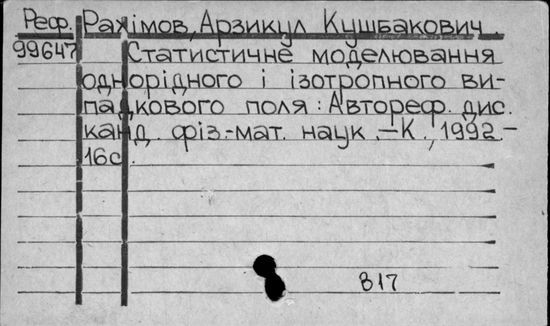 Реф. Рахімов, Арзикул Кушбакович
99647 Статистичне моделювання
однорідного і ізотропного ви-
падкового поля : Автореф. дис.
канд. фіз.-мат. наук .-К., 1992.-
16с.
817